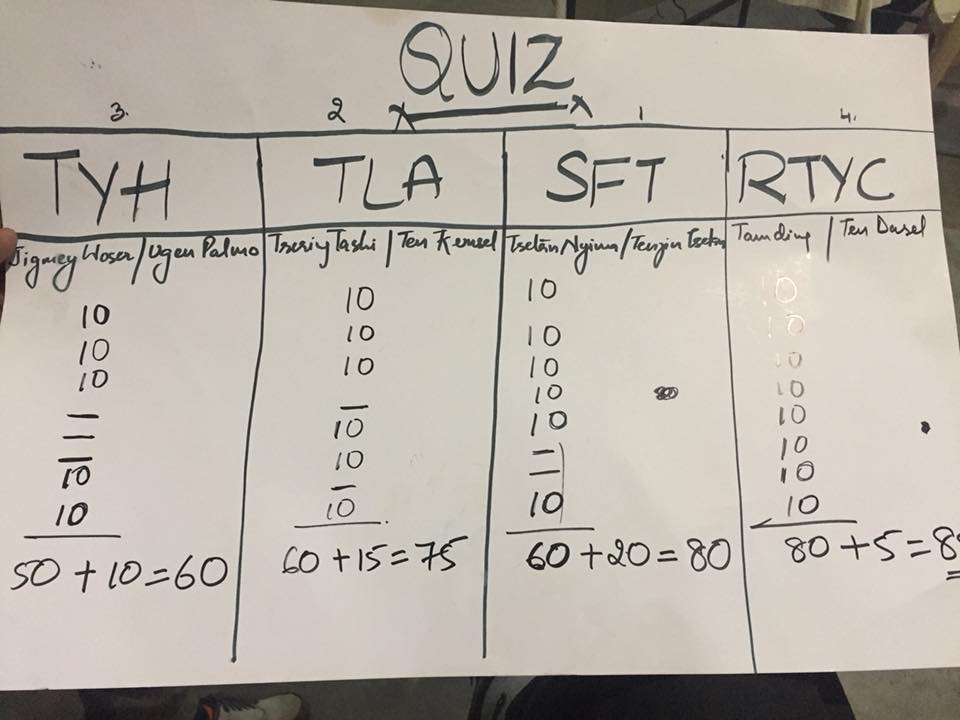 QUIZ
3. 2 1 4.
TYH TLA SFT RTYC
Jigmey Woser / Ugen Palmo Tsering Tashi / Ten Kemsel Tsetan Nyima / Tenzin Tsetan Tamding / Ten Dasel
10 10 10 10
10 10 10 10
10 10 10 10
— — 10 10
— 10 10 10
— 10 — 10
10 — — 10
10 10 10 10
50 + 10 = 60 60 + 15 = 75 60 + 20 = 80 80 + 5 = 8